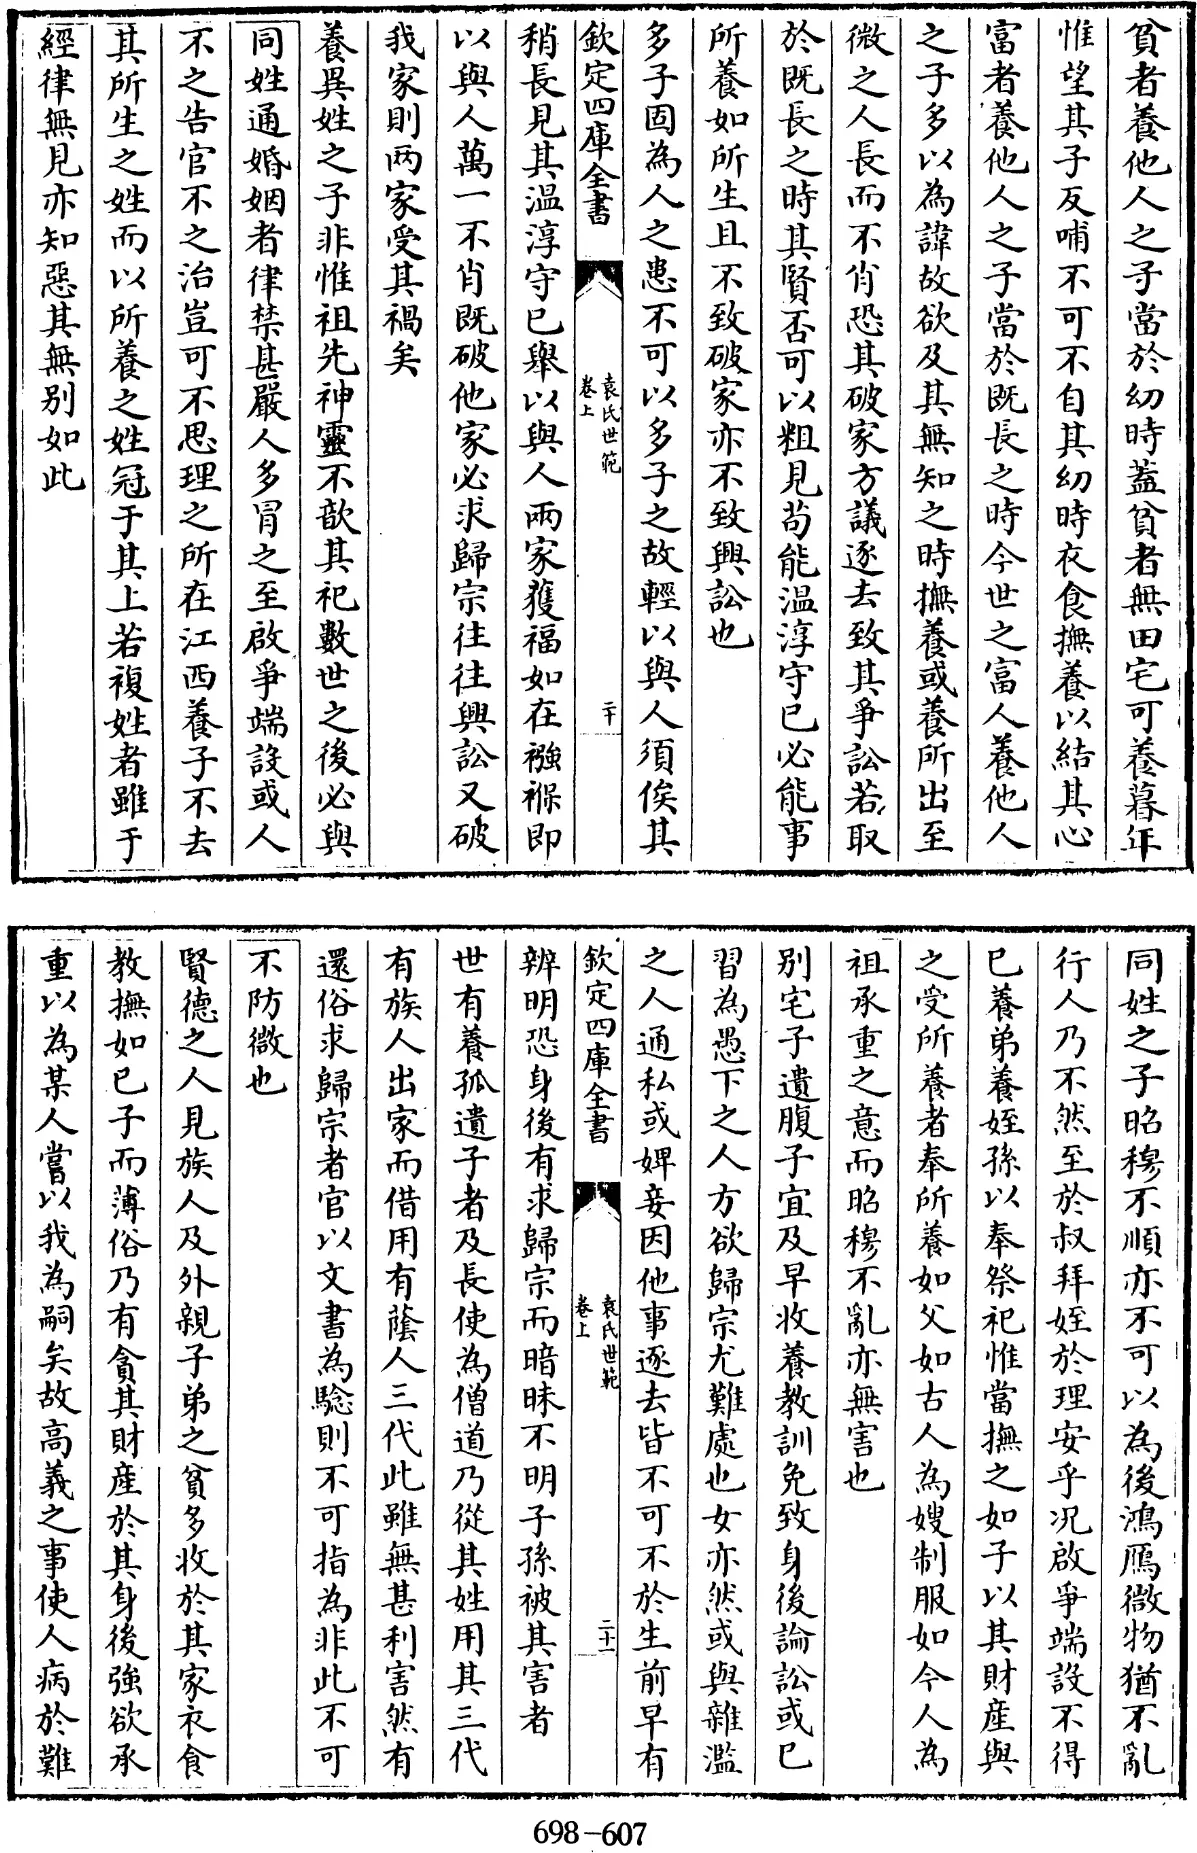 貧者養他人之子當於幼時蓋貧者無田宅可養暮年
惟望其子反哺不可不自其幼時衣食撫養以結其心
富者養他人之子當於既長之時今世之富人養他人
之子多以為諱故欲及其無知之時撫養或養所出至
微之人長而不肖恐其破家方議逐去致其爭訟若取
於既長之時其賢否可以粗見苟能温淳守已必能事
所養如所生且不致破家亦不致興訟也
多子固為人之患不可以多子之故輕以與人須俟其
欽定四庫全書
袁氏世範
卷上
二十
稍長見其温淳守已舉以與人兩家獲福如在襁褓即
以與人萬一不肖既破他家必求歸宗往往興訟又破
我家則兩家受其禍矣
養異姓之子非惟祖先神靈不歆其祀數世之後必與
同姓通婚姻者律禁甚嚴人多冒之至啟爭端設或人
不之告官不之治豈可不思理之所在江西養子不去
其所生之姓而以所養之姓冠于其上若複姓者雖于
經律無見亦知惡其無别如此
同姓之子昭穆不順亦不可以為後鴻鴈微物猶不亂
行人乃不然至於叔拜姪於理安乎况啟爭端設不得
已養弟養姪孫以奉祭祀惟當撫之如子以其財產與
之受所養者奉所養如父如古人為嫂制服如今人為
祖承重之意而昭穆不亂亦無害也
别宅子遺腹子宜及早收養教訓免致身後論訟或已
習為愚下之人方欲歸宗尤難處也女亦然或與雜濫
之人通私或婢妾因他事逐去皆不可不於生前早有
欽定四庫全書
袁氏世範
卷上
二十一
辨明恐身後有求歸宗而暗昧不明子孫被其害者
世有養孤遺子者及長使為僧道乃從其姓用其三代
有族人出家而借用有蔭人三代此雖無甚利害然有
還俗求歸宗者官以文書為驗則不可指為非此不可
不防微也
賢德之人見族人及外親子弟之貧多收於其家衣食
教撫如已子而薄俗乃有貪其財產於其身後強欲承
重以為某人嘗以我為嗣矣故高義之事使人病於難
698-607